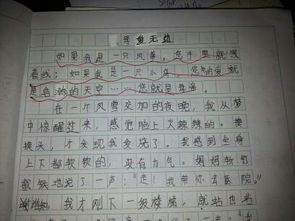 母爱无边
如果我是一只风筝，您手里就线
着线；如果我是一只小鸟，您的爱就
是蓝蓝的天空…您就是
在一个风雪交加的夜晚，我从梦
中惊醒过来，感觉脸上火辣辣的。摸
摸头，才发现我发烧了。我感到全身
上下都软软的，没有力气。妈妈
地说了一声：“走！我带你去医院。”
我才刚下一级楼梯，就站也